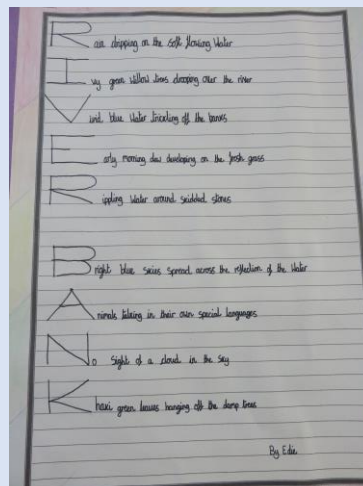 Rain dripping on the soft flowing water
Ivy green willow trees drooping over the river
Vivid blue water trickling off the banks
Early morning dew developing on the fresh grass
Rippling water around skidded stones
Bright blue skies spread across the reflection of the water
Animals talking in their own special languages
No sight of a cloud in the sky
Khaki green leaves hanging off the damp trees
By Edie